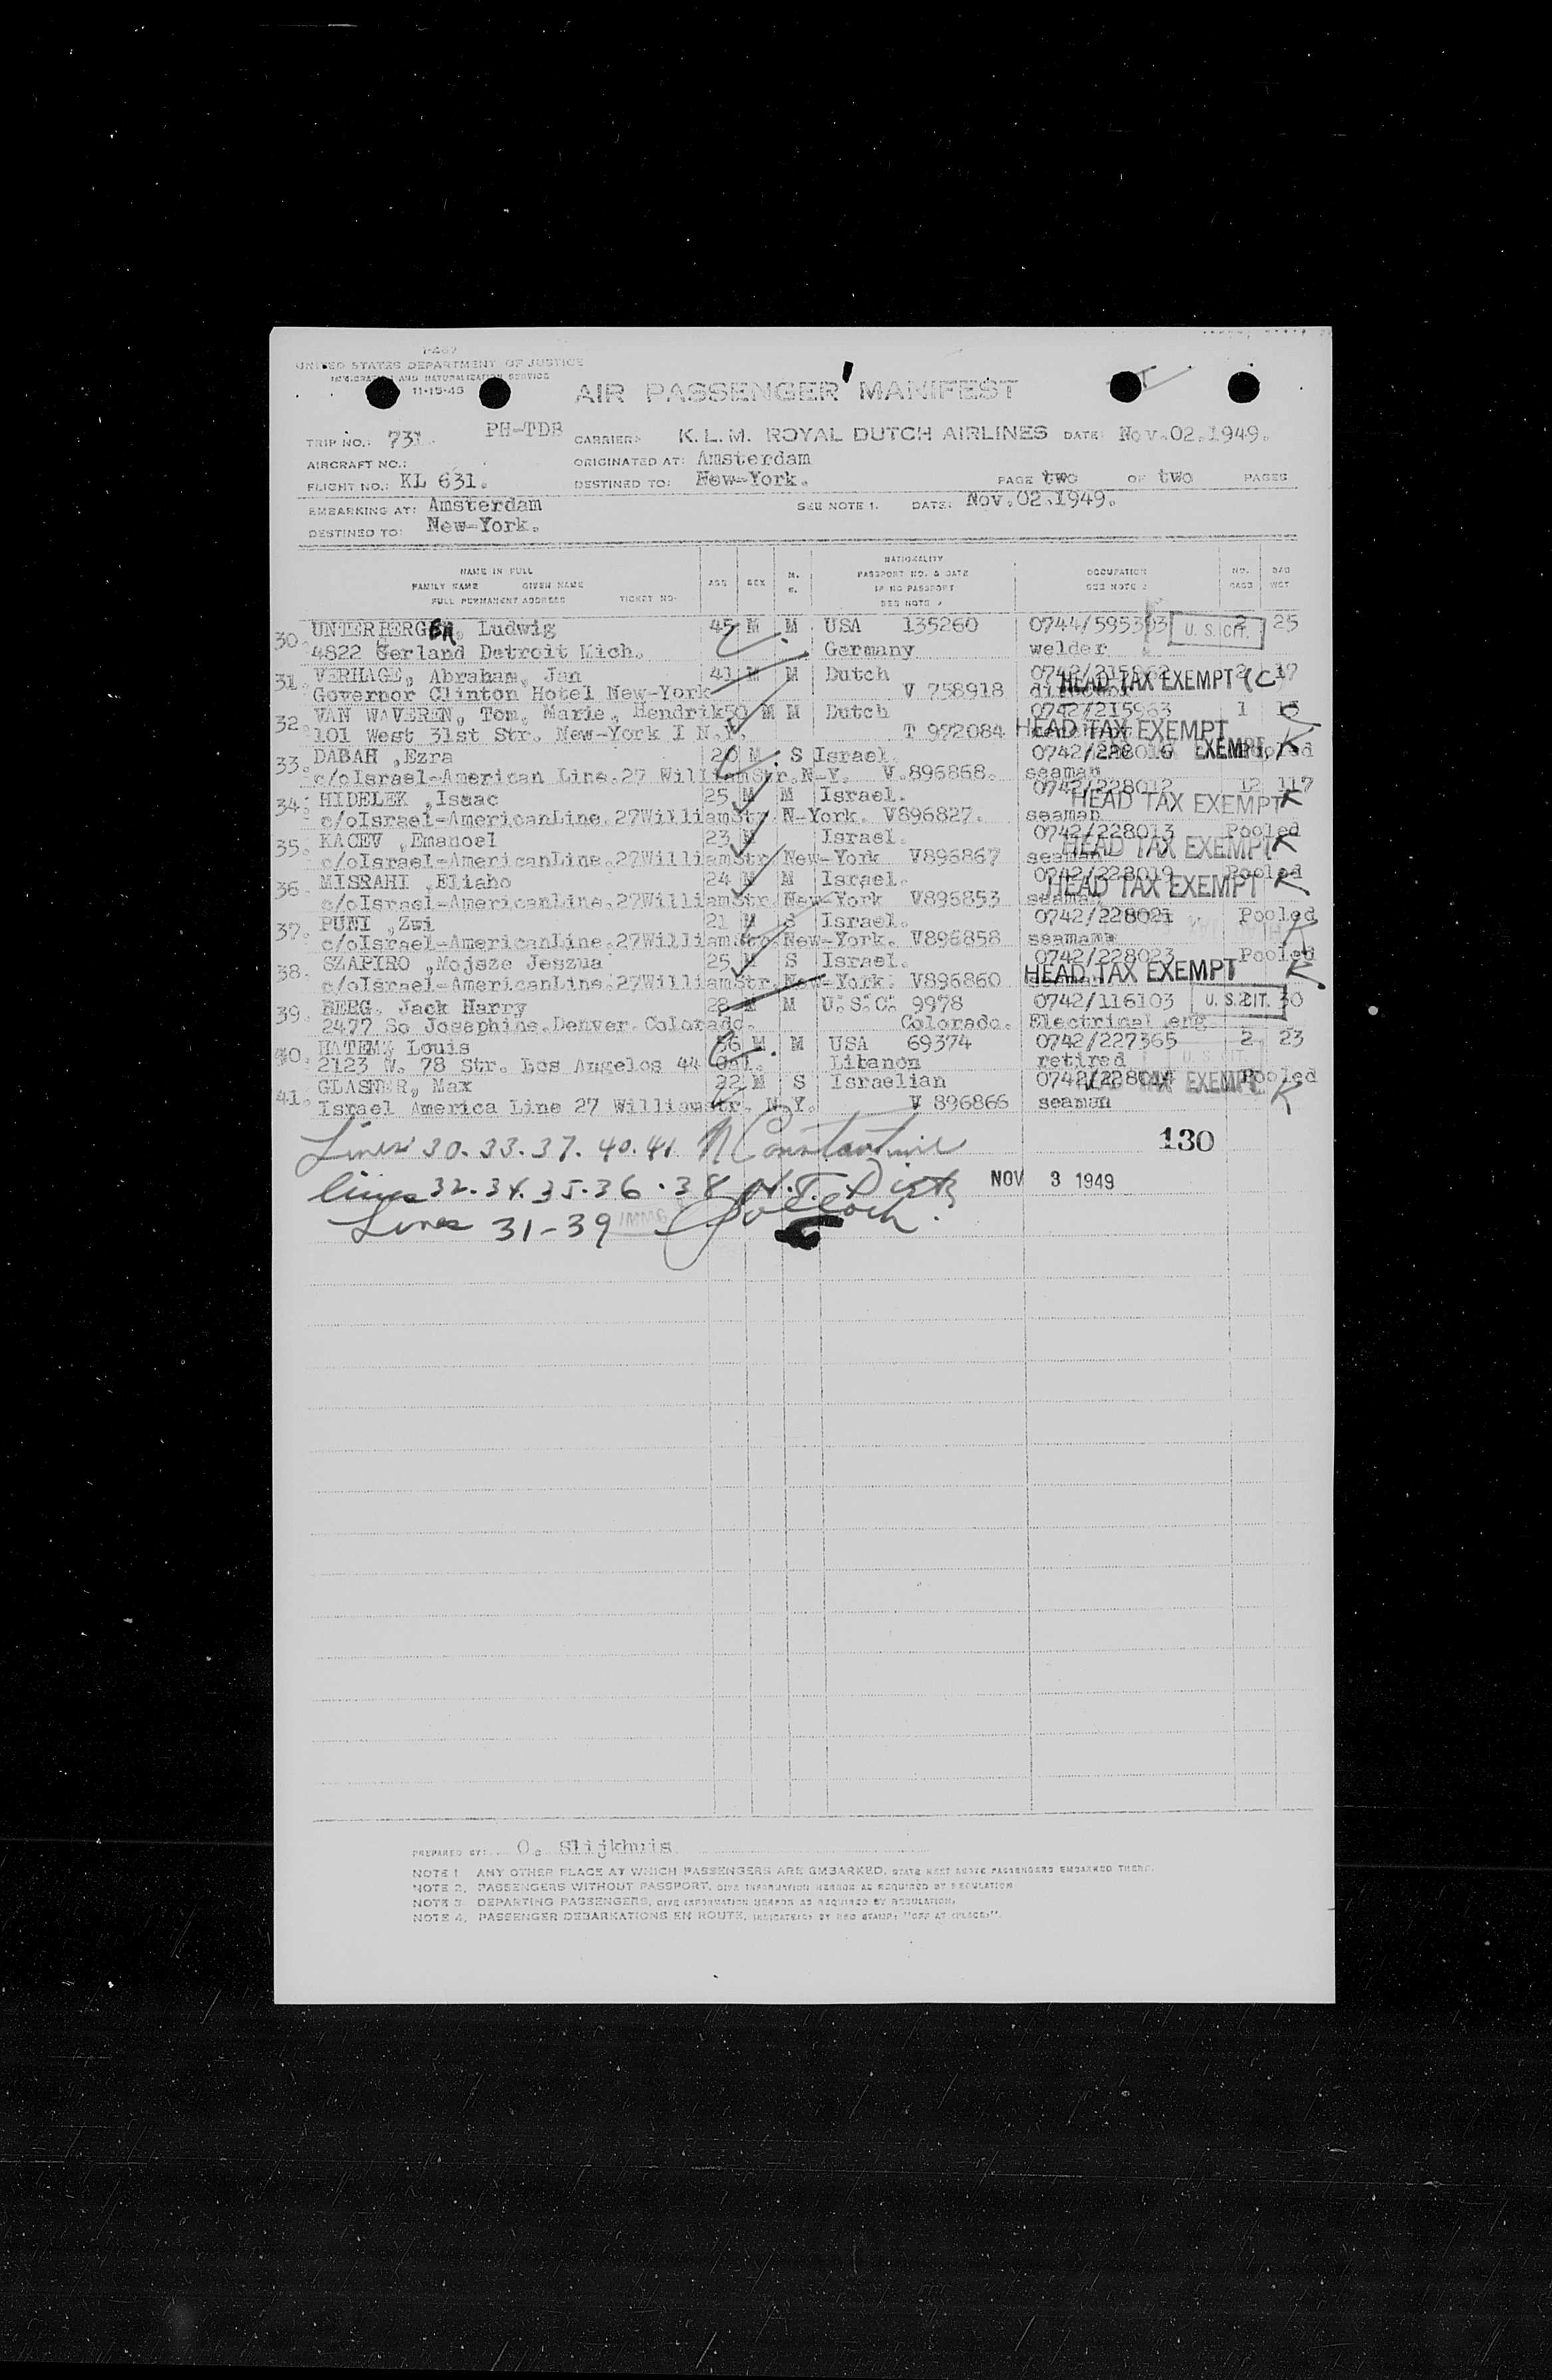 I-467
UNITED STATES DEPARTMENT OF JUSTICE
IMMIGRATION AND NATURALIZATION SERVICE
11-15-45
AIR PASSENGER MANIFEST
TRIP NO.: 731. PH-TDB CARRIER: K.L.M. ROYAL DUTCH AIRLINES DATE: Nov.02.1949.
AIRCRAFT NO.: ORIGINATED AT: Amsterdam
FLIGHT NO.: KL 631. DESTINED TO: New-York. PAGE two OF two PAGES
EMBARKING AT: Amsterdam SEE NOTE 1. DATE: Nov.02.1949.
DESTINED TO: New-York.
NAME IN FULL NATIONALITY
FAMILY NAME GIVEN NAME AGE SEX M. PASSPORT NO. & DATE OCCUPATION NO. BAG
IF NO PASSPORT SEE NOTE BAGS WGT
FULL PERMANENT ADDRESS TICKET NO. SEE NOTE
30. UNTERBERGER, Ludwig 45 M M USA 135260 0744/595303 U.S. CIT. 2 25
4822 Gerland Detroit Mich. Germany welder
31. VERHAGE, Abraham, Jan 41 M M Dutch 0742/215962 2 17
Governor Clinton Hotel New-York V 758918 HEAD TAX EXEMPT
32. VAN WAVEREN, Tom, Marie, Hendrik 50 M M Dutch 0742/215963 1
101 West 31st Str. New-York I N.Y. T 972084 HEAD TAX EXEMPT K
33. DABAH ,Ezra 20 M S Israel. 0742/228016 EXEMPT Pooled
c/oIsrael-American Line.27 WilliamStr.N-Y. V.896868. seaman
34. HIDELEK ,Isaac 25 M M Israel. 0742/228012 12 117
c/oIsrael-AmericanLine.27WilliamStr.N-York. V896827. seaman HEAD TAX EXEMPT K
35. KACEV ,Emanoel 23 M Israel. 0742/228013 Pooled
c/oIsrael-AmericanLine.27WilliamStr.New-York V896867 seaman HEAD TAX EXEMPT K
36. MISRAHI ,Eliaho 24 M M Israel. 0742/228019 Pooled
c/oIsrael-AmericanLine.27WilliamStr.New-York V896853 seaman HEAD TAX EXEMPT K
37. PUNI ,Zwi 21 M S Israel. 0742/228021 Pooled
c/oIsrael-AmericanLine.27WilliamStr.New-York. V896858 seamann
38. SZAPIRO ,Mojsze Jeszua 25 M S Israel. 0742/228023 Pooled
c/oIsrael-AmericanLine.27WilliamStr.New-York. V896860 HEAD TAX EXEMPT K
39. BERG. Jack Harry 28 M M U.S.C. 9978 0742/116103 U.S. CIT. 30
2477 So Josephine.Denver.Colorado. Colorado. Electrical eng
40. HATEM, Louis 56 M M USA 69374 0742/227365 2 23
2123 W. 78 Str. Los Angelos 44 Cal. Libanon retired U.S. CIT.
41. GLASNER, Max 22 M S Israelian 0742/228014 Pooled
Israel America Line 27 Williamstr. N.Y. V 896866 seaman EXEMPT K
Lines 30. 33. 37. 40. 41 N Constantine 130
lines 32. 34. 35. 36. 38 NOV 3 1949
Lines 31-39 IMMG
PREPARED BY: O. Slijkhuis
NOTE 1. ANY OTHER PLACE AT WHICH PASSENGERS ARE EMBARKED, STATE NEXT ABOVE PASSENGERS EMBARKED THERE.
NOTE 2. PASSENGERS WITHOUT PASSPORT, GIVE INFORMATION HEREON AS REQUIRED BY REGULATION
NOTE 3. DEPARTING PASSENGERS, GIVE INFORMATION HEREON AS REQUIRED BY REGULATION.
NOTE 4. PASSENGER DEBARKATIONS EN ROUTE, INDICATE BY RED STAMP: "OFF AT (PLACE)".